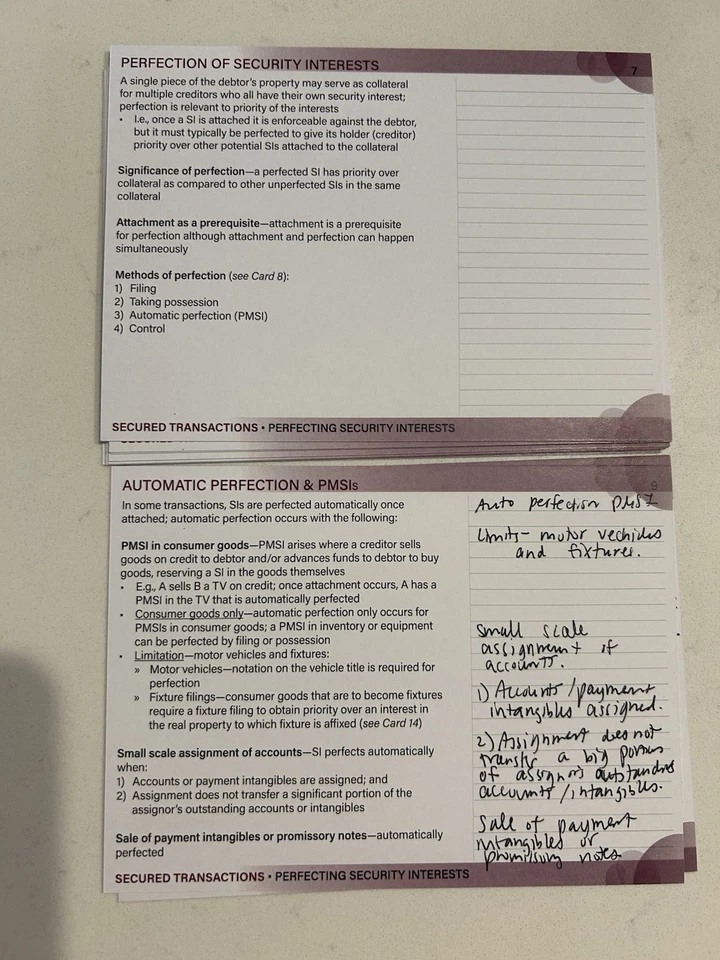 PERFECTION OF SECURITY INTERESTS
7
A single piece of the debtor's property may serve as collateral
for multiple creditors who all have their own security interest;
perfection is relevant to priority of the interests
• I.e., once a SI is attached it is enforceable against the debtor,
but it must typically be perfected to give its holder (creditor)
priority over other potential SIs attached to the collateral
Significance of perfection—a perfected SI has priority over
collateral as compared to other unperfected SIs in the same
collateral
Attachment as a prerequisite—attachment is a prerequisite
for perfection although attachment and perfection can happen
simultaneously
Methods of perfection (see Card 8):
1) Filing
2) Taking possession
3) Automatic perfection (PMSI)
4) Control
SECURED TRANSACTIONS • PERFECTING SECURITY INTERESTS
AUTOMATIC PERFECTION & PMSIs
9
In some transactions, SIs are perfected automatically once
attached; automatic perfection occurs with the following:
PMSI in consumer goods—PMSI arises where a creditor sells
goods on credit to debtor and/or advances funds to debtor to buy
goods, reserving a SI in the goods themselves
• E.g., A sells B a TV on credit; once attachment occurs, A has a
PMSI in the TV that is automatically perfected
• Consumer goods only—automatic perfection only occurs for
PMSIs in consumer goods; a PMSI in inventory or equipment
can be perfected by filing or possession
• Limitation—motor vehicles and fixtures:
» Motor vehicles—notation on the vehicle title is required for
perfection
» Fixture filings—consumer goods that are to become fixtures
require a fixture filing to obtain priority over an interest in
the real property to which fixture is affixed (see Card 14)
Small scale assignment of accounts—SI perfects automatically
when:
1) Accounts or payment intangibles are assigned; and
2) Assignment does not transfer a significant portion of the
assignor's outstanding accounts or intangibles
Sale of payment intangibles or promissory notes—automatically
perfected
SECURED TRANSACTIONS • PERFECTING SECURITY INTERESTS
Auto perfection PMSI
Limits- motor vechicles
and fixtures.
Small scale
assignment if
accounts.
1) Accounts/payment
intangibles assigned.
2) Assignment does not
transfer a big
of assignors outstanding
accounts/intangibles.
Sale of payment
intangibles or
promissory notes